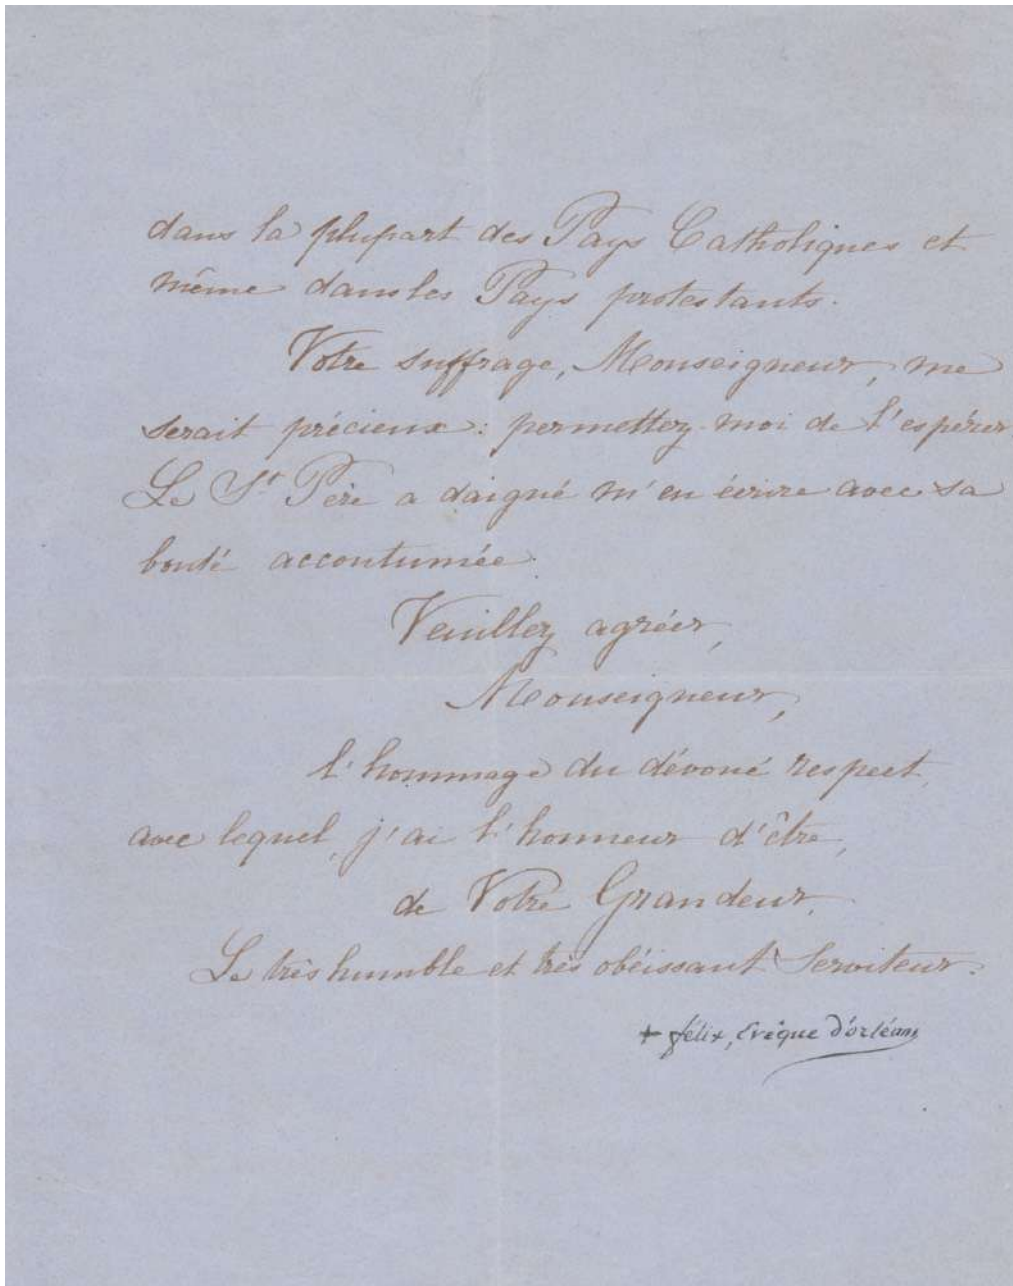 dans la plupart des Pays Catholiques et
même dans les Pays protestants.
Votre suffrage, Monseigneur, me
serait précieux : permettez-moi de l'espérer.
Le St Père a daigné m'en écrire avec sa
bonté accoutumée.
Veuillez agréer,
Monseigneur,
l'hommage du dévoué respect,
avec lequel, j'ai l'honneur d'être,
de Votre Grandeur,
Le très humble et très obéissant Serviteur.
+ félix, Evêque d'orléans